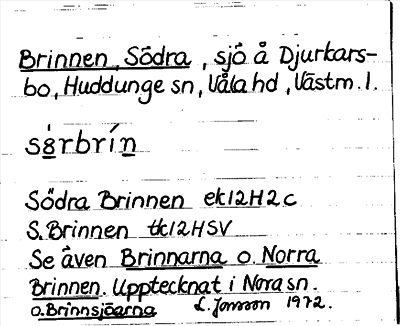 Brinnen, Södra, sjö å Djurkars-
bo, Huddunge sn, Våla hd, Västm. l.
sèrbrín
Södra Brinnen ek12H2c
S. Brinnen tk12HSV
Se även Brinnarna o. Norra
Brinnen. Upptecknat i Nora sn.
o. Brinnsjöarna L. Jonsson 1972.